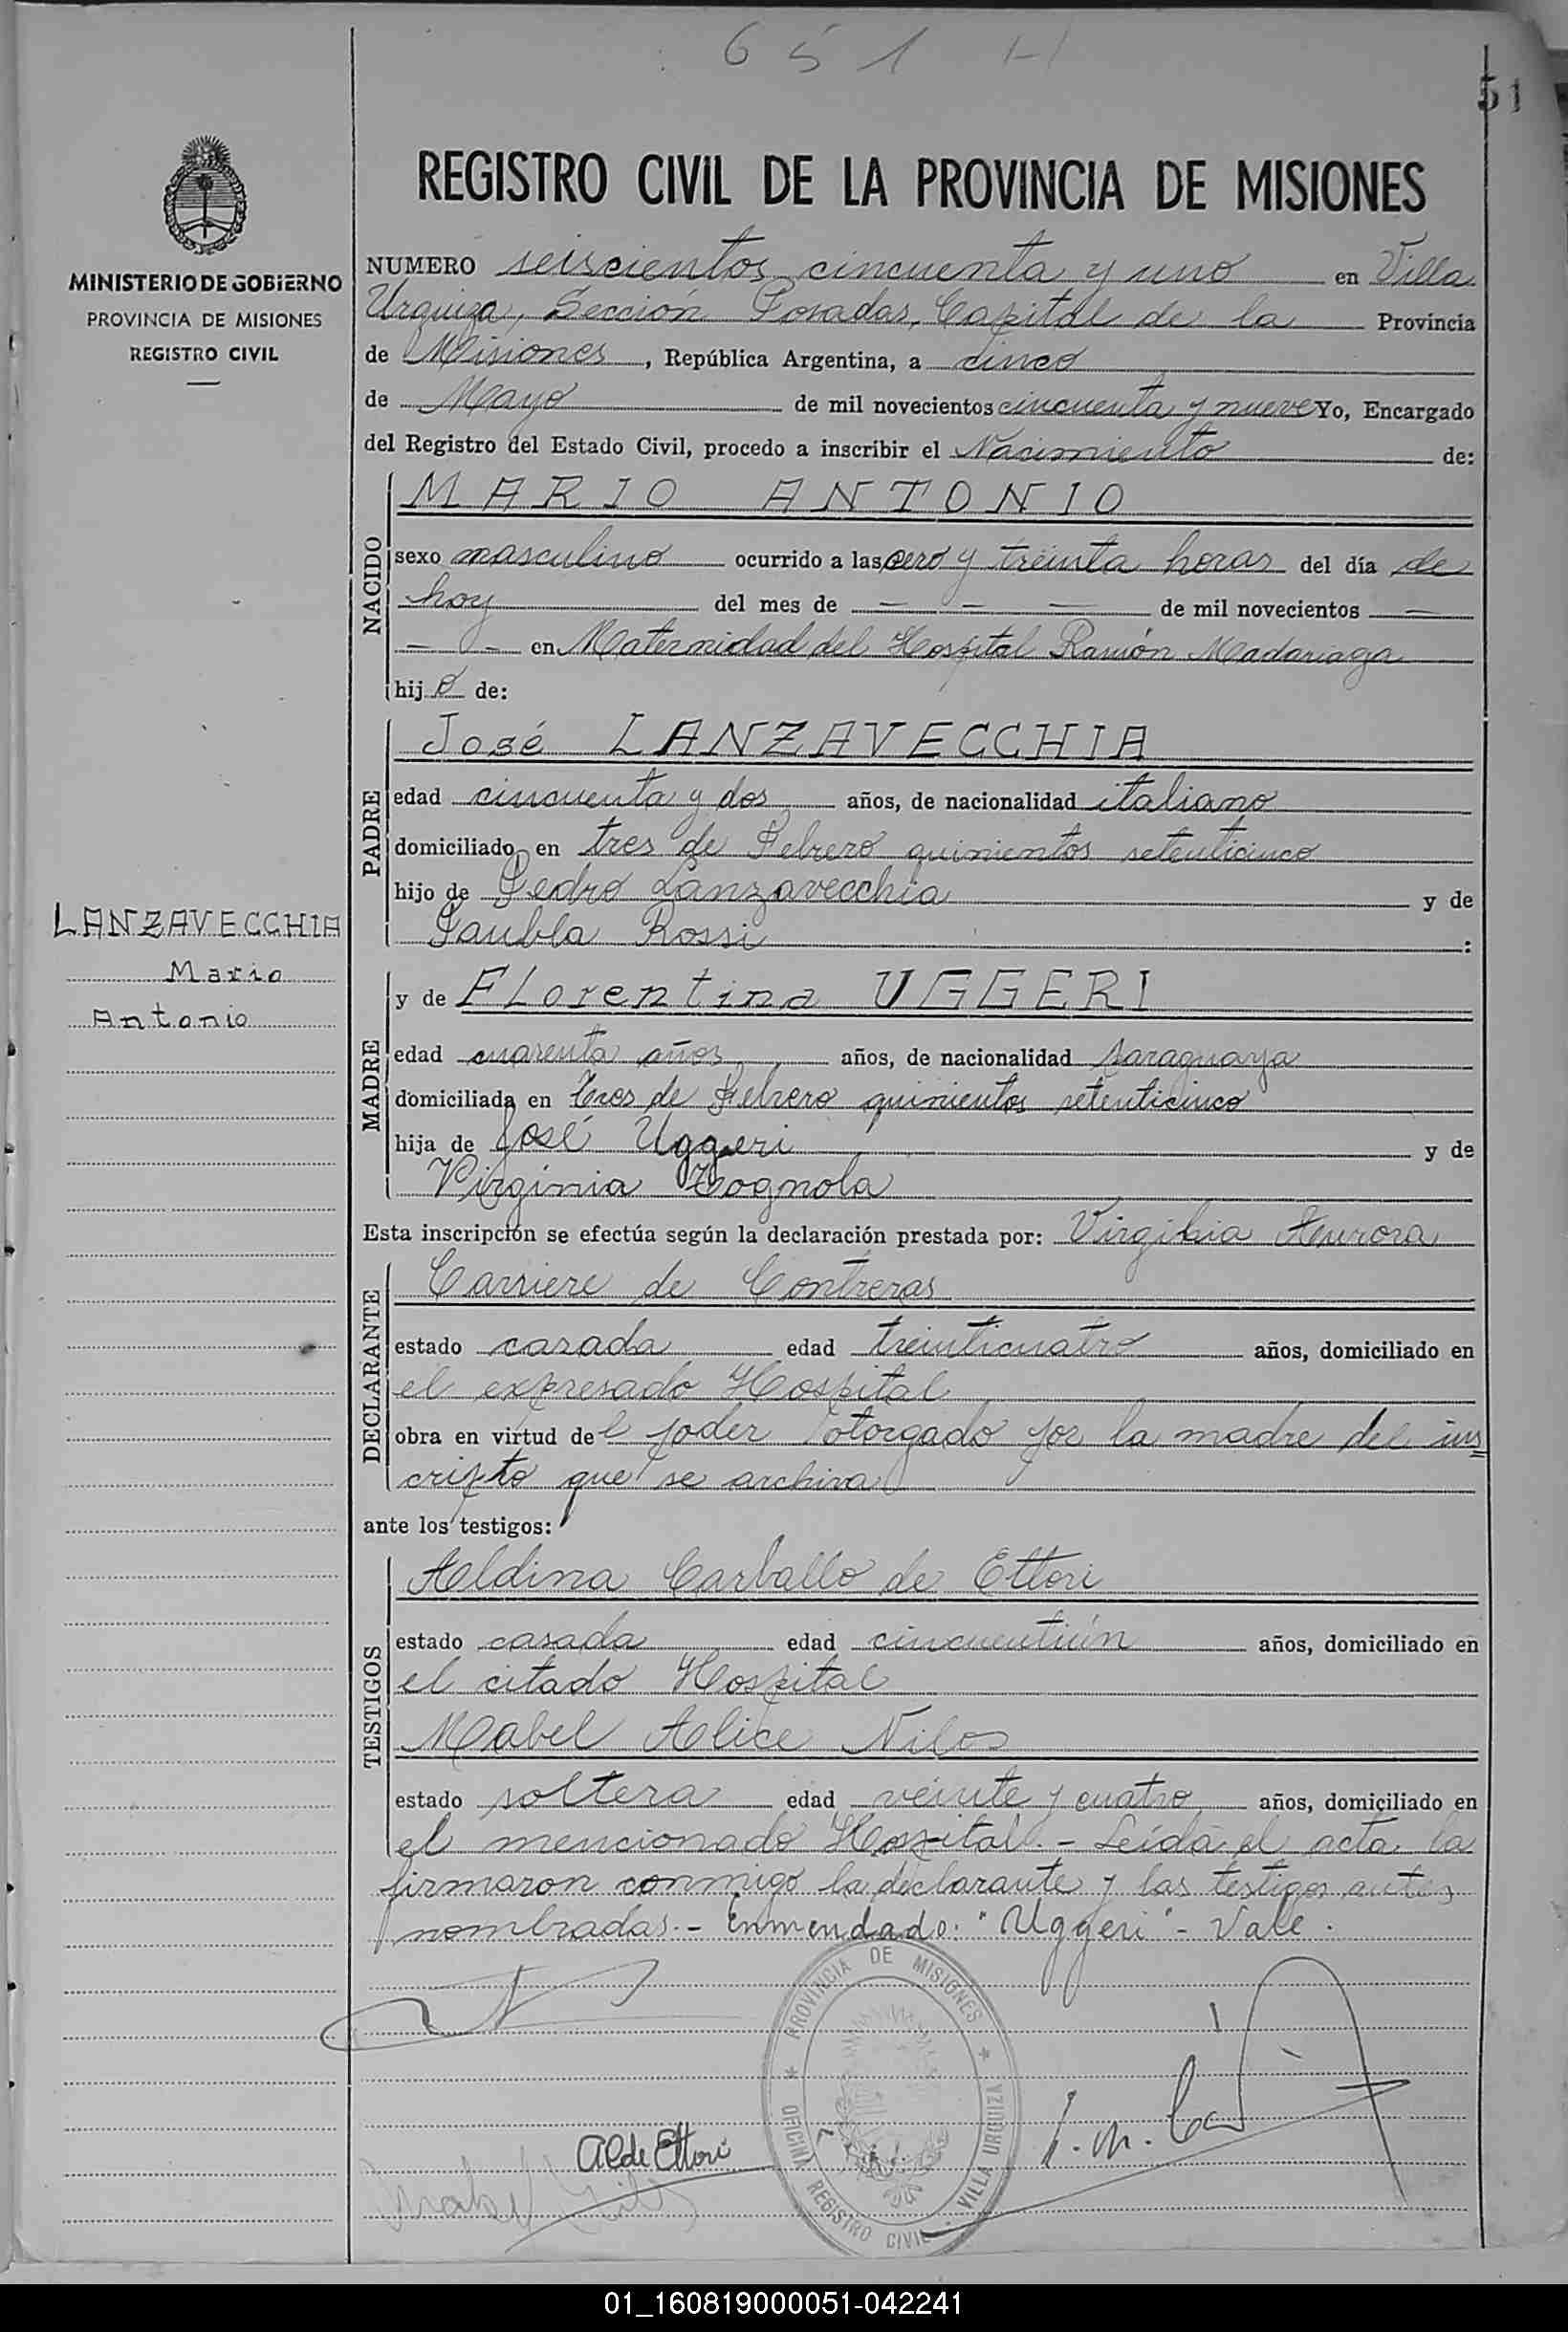 651
51
MINISTERIO DE GOBIERNO
PROVINCIA DE MISIONES
REGISTRO CIVIL
LANZAVECCHIA
Mario
Antonio
REGISTRO CIVIL DE LA PROVINCIA DE MISIONES
NUMERO seiscientos cincuenta y uno en Villa
Urquiza, Sección Posadas, Capital de la Provincia
de Misiones, República Argentina, a cinco
de Mayo de mil novecientos cincuenta y nueve Yo, Encargado
del Registro del Estado Civil, procedo a inscribir el Nacimiento de:
NACIDO
MARIO ANTONIO
sexo masculino ocurrido a las cero y treinta horas del día de
hoy del mes de — — — de mil novecientos —
— — en Maternidad del Hospital Ramón Madariaga
hijo de:
PADRE
José LANZAVECCHIA
edad cincuenta y dos años, de nacionalidad italiano
domiciliado en tres de Febrero quinientos setenticinco
hijo de Pedro Lanzavecchia y de
Paubla Rossi :
MADRE
y de FLorentina UGGERI
edad cuarenta años años, de nacionalidad paraguaya
domiciliada en tres de Febrero quinientos setenticinco
hija de José Uggeri y de
Virginia Zognola
Esta inscripción se efectúa según la declaración prestada por: Aurora
DECLARANTE
Carriere de Contreras
estado casada edad treinticuatro años, domiciliado en
el expresado Hospital
obra en virtud del poder otorgado por la madre del ins
cripto que se archiva
ante los testigos:
TESTIGOS
Aldina Carballo de Ettori
estado casada edad cincuentiún años, domiciliado en
el citado Hospital
Mabel Alice
estado soltera edad veinte y cuatro años, domiciliado en
el mencionado Hospital.- Leída el acta la
firmaron conmigo la declarante y las testigos antes
nombradas.- Enmendado: "Uggeri"- Vale.
PROVINCIA DE MISIONES
OFICINA REGISTRO CIVIL VILLA URQUIZA
Al de Ettori
01_160819000051-042241